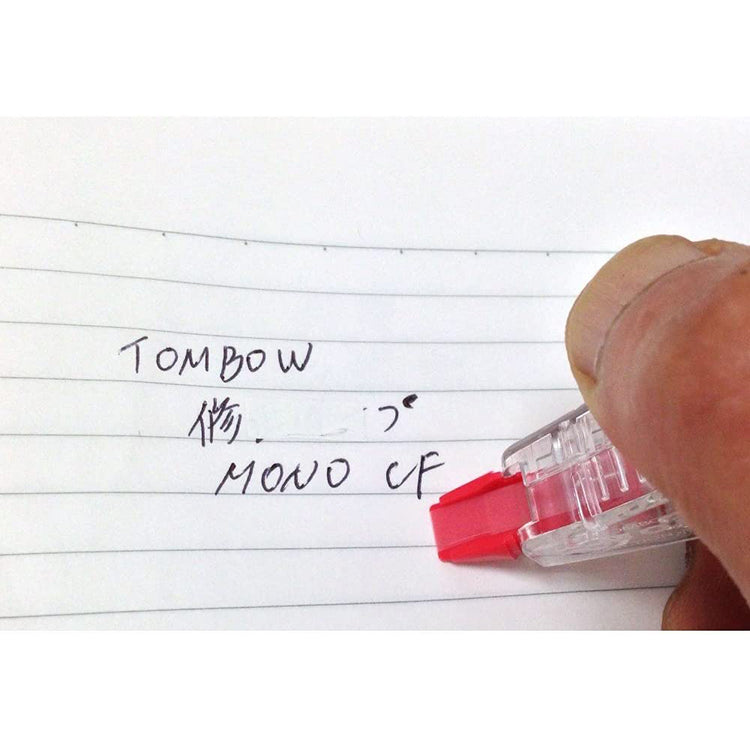 TOMBOW
修
MONO CF